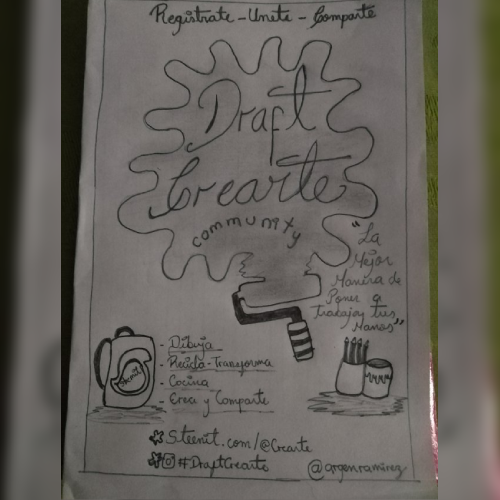 Registrate - Unete - Comparte
Draft
Crearte
community
"La
Mejor
Manera de
Poner a
trabajar tus
Manos"
- Dibuja
- Recicla - Transforma
- Cocina
- Crea y Comparte
Steemit
Steemit.com/@Crearte
#DraftCrearte
@argenramirez